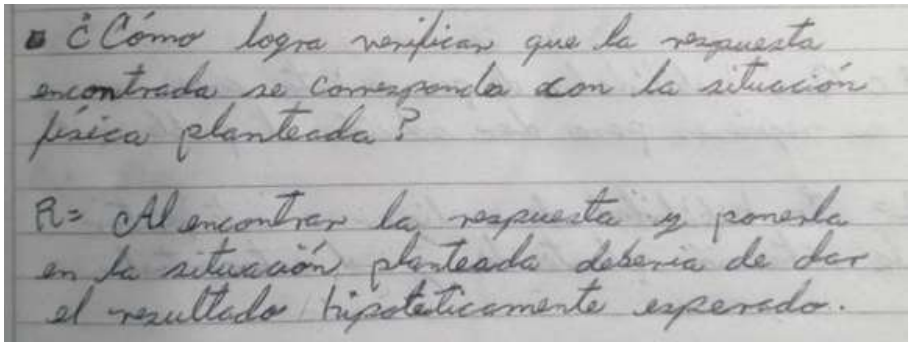 ▪ ¿Cómo logra verificar que la respuesta
encontrada se corresponda con la situación
física planteada?
R= Al encontrar la respuesta y ponerla
en la situación planteada deberia de dar
el resultado hipoteticamente esperado.